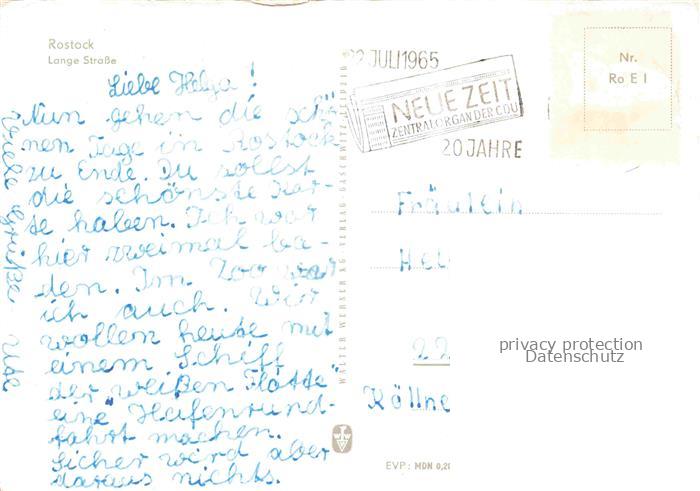 Rostock
Lange Straße
Liebe Helga!
Nun gehen die schö-
nen Tage in Rostock
zu Ende. Du sollst
die schönste Kar-
te haben. Ich war
hier zweimal ba-
den. Im Zoo war
ich auch. Wir
wollen heute mit
einem Schiff
der "weißen Flotte"
eine Hafenrund-
fahrt machen.
Sicher wird aber
daraus nichts.
Viele Grüße Ute
WALTER WERNER KG · VERLAG GASCHWITZ LEIPZIG
22 JULI 1965
NEUE ZEIT
ZENTRALORGAN DER CDU
20 JAHRE
Nr.
Ro E I
Fräulein
Hel
22
Kölln
privacy protection
Datenschutz
EVP: MDN 0,20